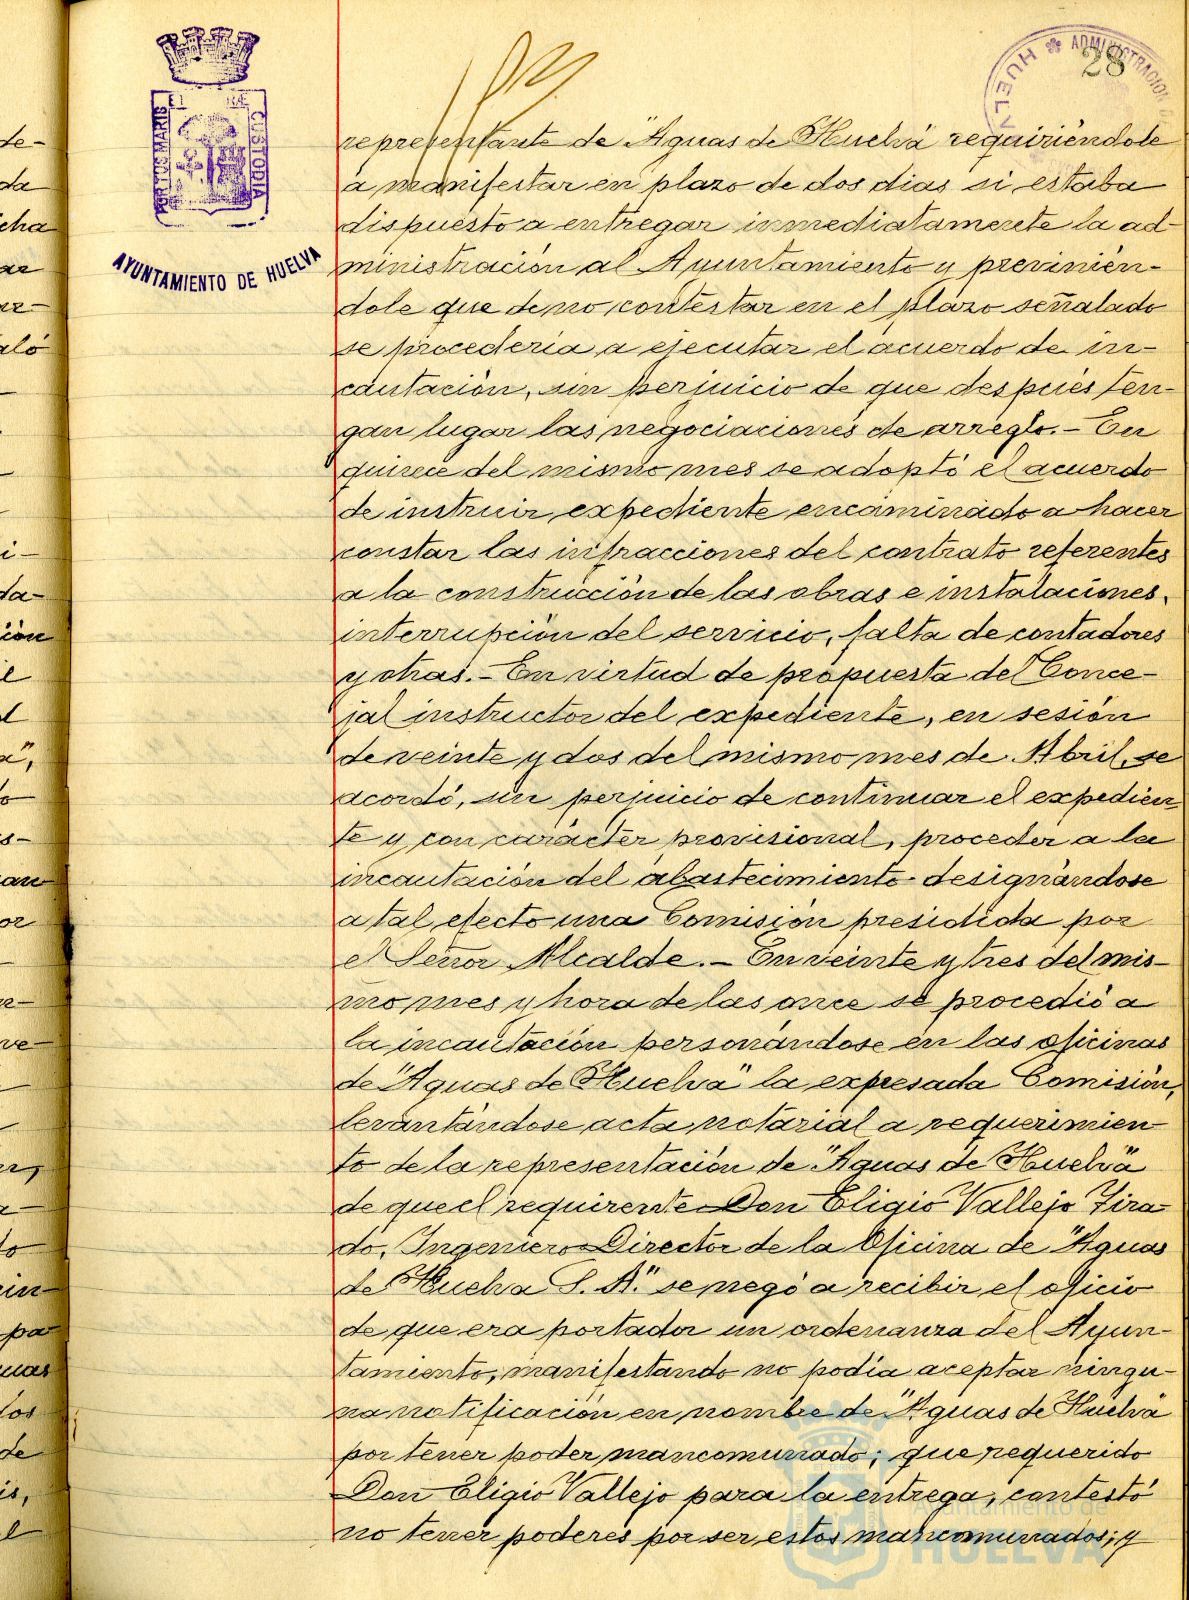 28
ADMINISTRACION
HUELVA
PORTUS MARIS ET TERRAE CUSTODIA
AYUNTAMIENTO DE HUELVA
representante de "Aguas de Huelva" requiriéndole
a manifestar en plazo de dos dias si estaba
dispuesto a entregar inmediatamente la ad-
ministración al Ayuntamiento y previnién-
dole que de no contestar en el plazo señalado
se procederia a ejecutar el acuerdo de in-
cautación, sin perjuicio de que después ten-
gan lugar las negociaciones de arreglo.- En
quince del mismo mes se adoptó el acuerdo
de instruir expediente encaminado a hacer
constar las infracciones del contrato referentes
a la construcción de las obras e instalaciones,
interrupción del servicio, falta de contadores
y otras.- En virtud de propuesta del Conce-
jal instructor del expediente, en sesión
de veinte y dos del mismo mes de Abril, se
acordó, sin perjuicio de continuar el expedien-
te y con carácter provisional, proceder a la
incautación del abastecimiento designándose
a tal efecto una Comisión presidida por
el Señor Alcalde.- En veinte y tres del mis-
mo mes y hora de las once se procedió a
la incautación personándose en las oficinas
de "Aguas de Huelva" la expresada Comisión,
levantándose acta notarial a requerimien-
to de la representación de "Aguas de Huelva"
de que el requirente Don Eligio Vallejo Tira-
do, Ingeniero Director de la Oficina de "Aguas
de Huelva S.A." se negó a recibir el oficio
de que era portador un ordenanza del Ayun-
tamiento, manifestando no podía aceptar ningu-
na notificación en nombre de "Aguas de Huelva"
por tener poder mancomunado; que requerido
Don Eligio Vallejo para la entrega, contestó
no tener poderes por ser estos mancomunados; y
Ayuntamiento de
HUELVA